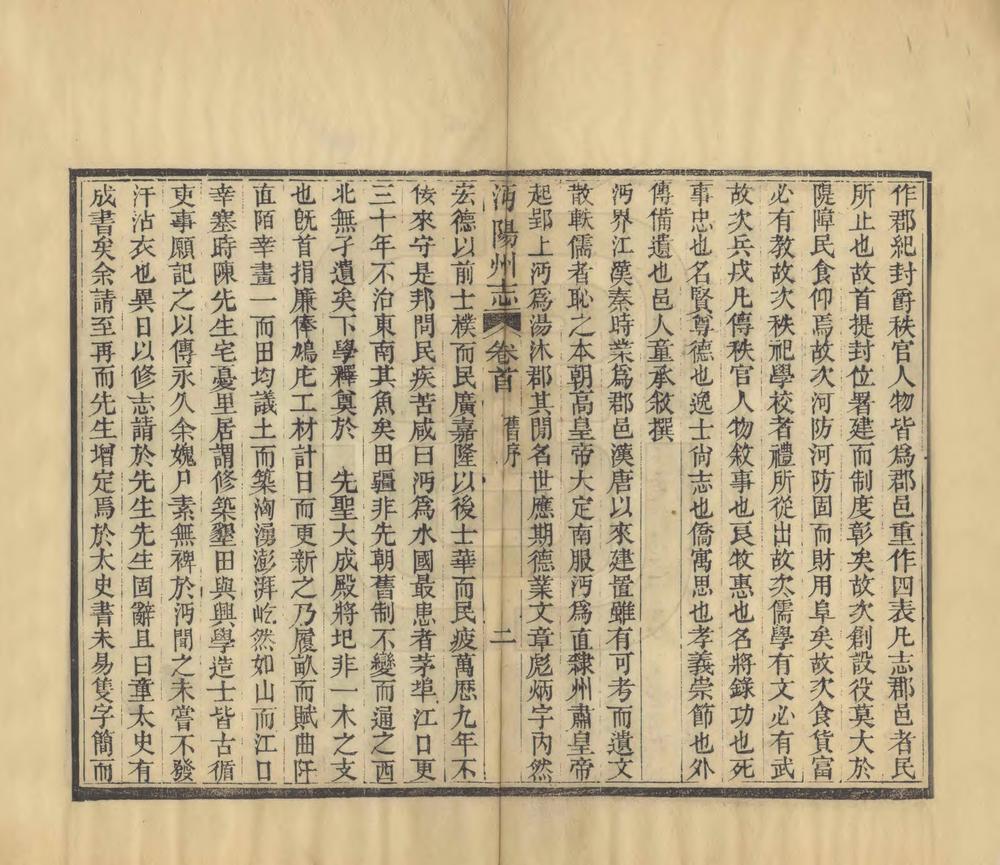 作郡紀封爵秩官人物皆爲郡邑重作四表凡志郡邑者民
所止也故首提封位署建而制度彰矣故次創設役莫大於
隄障民食仰焉故次河防河防固而財用阜矣故次食貨富
必有教故次秩祀學校者禮所從出故次儒學有文必有武
故次兵戎凡傳秩官人物敘事也良牧惠也名將錄功也死
事忠也名賢尊德也逸士尙志也僑寓思也孝義崇節也外
傳備遺也邑人童承敘撰
沔界江漢秦時業爲郡邑漢唐以來建置雖有可考而遺文
散軼儒者恥之本朝高皇帝大定南服沔爲直隸州肅皇帝
起郢上沔爲湯沐郡其間名世應期德業文章彪炳宇內然
沔陽州志 卷首 舊序 二
宏德以前士樸而民廣嘉隆以後士華而民疲萬厯九年不
佞來守是邦問民疾苦咸曰沔爲水國最患者茅埠江口更
三十年不治東南其魚矣田疆非先朝舊制不變而通之西
北無孑遺矣下學釋奠於 先聖大成殿將圯非一木之支
也旣首捐廉俸鳩庀工材計日而更新之乃履畝而賦曲阡
直陌幸畫一而田均議土而築洶湧澎湃屹然如山而江口
幸塞時陳先生宅憂里居謂修築墾田與興學造士皆古循
吏事願記之以傳永久余媿尸素無裨於沔聞之未嘗不發
汗沾衣也異日以修志請於先生先生固辭且曰童太史有
成書矣余請至再而先生增定焉於太史書未易隻字簡而